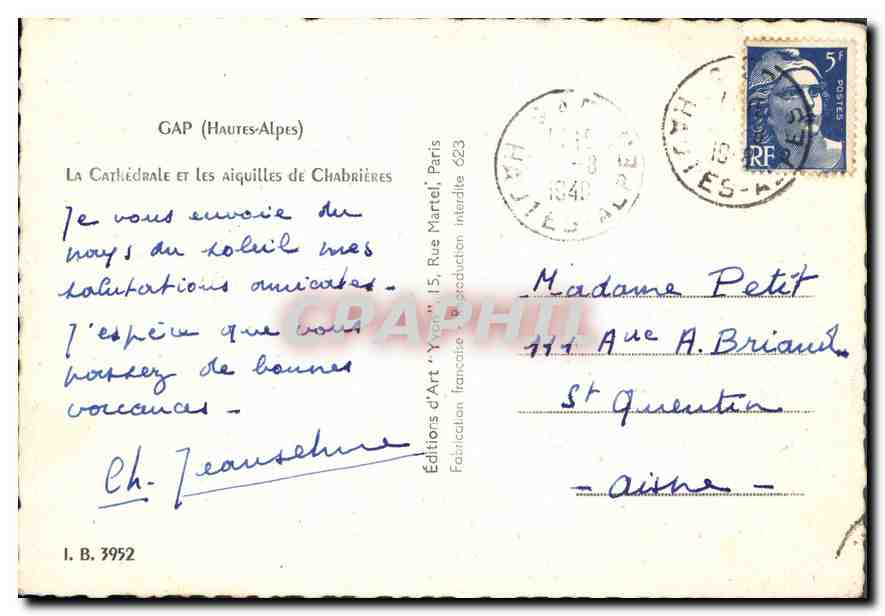 GAP (Hautes-Alpes)
La Cathédrale et les aiguilles de Chabrières
Je vous envoie du
pays du soleil mes
salutations amicales.
J'espère que vous
passez de bonnes
vacances -
Ch.
I. B. 3952
Éditions d'Art "Yvon", 15, Rue Martel, Paris
Fabrication française - Reproduction interdite 623
GAP
-8
194
HAUTES-ALPES
5F
POSTES
RF
HAUTES-ALPES
Madame Petit
111 Aue A. Briand
St Quentin
- Aisne -
CPAPHIL